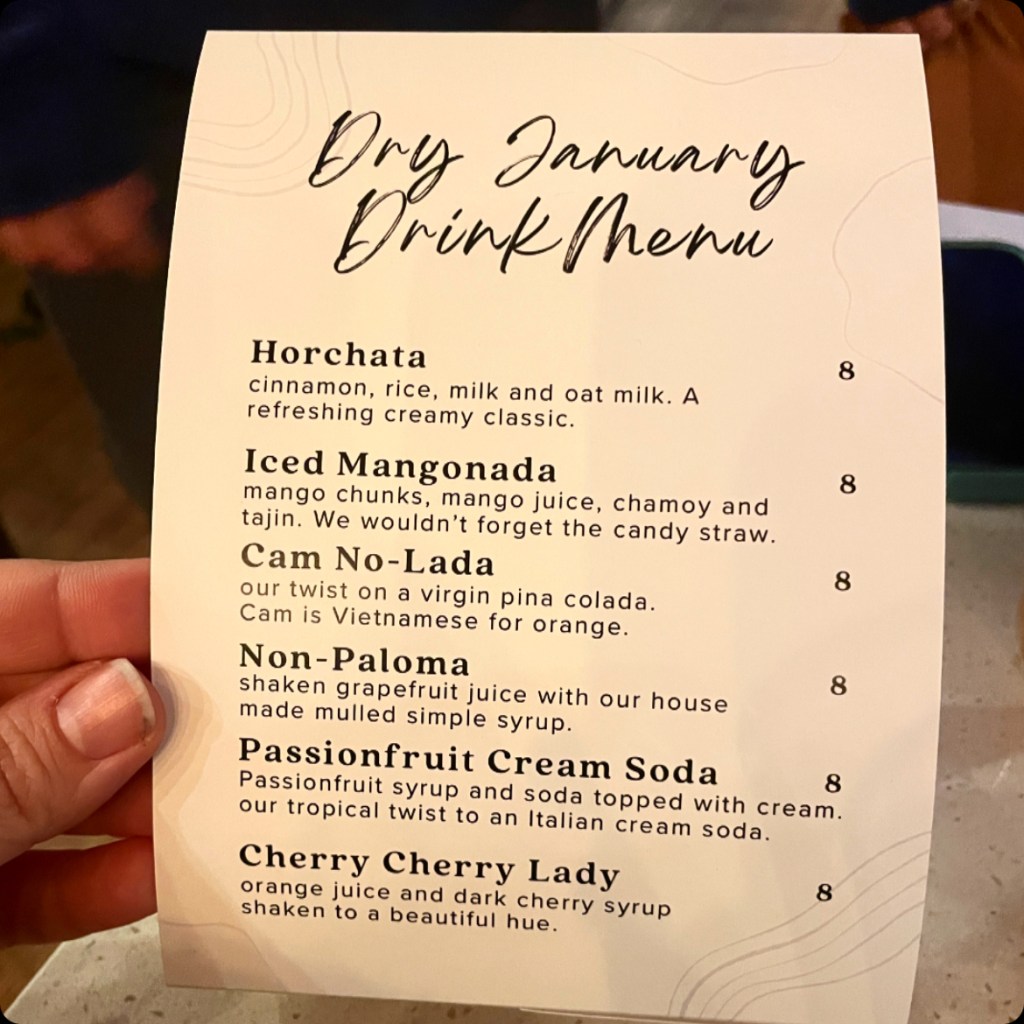 Dry January
Drink Menu
Horchata 8
cinnamon, rice, milk and oat milk. A
refreshing creamy classic.
Iced Mangonada 8
mango chunks, mango juice, chamoy and
tajin. We wouldn't forget the candy straw.
Cam No-Lada 8
our twist on a virgin pina colada.
Cam is Vietnamese for orange.
Non-Paloma 8
shaken grapefruit juice with our house
made mulled simple syrup.
Passionfruit Cream Soda 8
Passionfruit syrup and soda topped with cream.
our tropical twist to an Italian cream soda.
Cherry Cherry Lady 8
orange juice and dark cherry syrup
shaken to a beautiful hue.